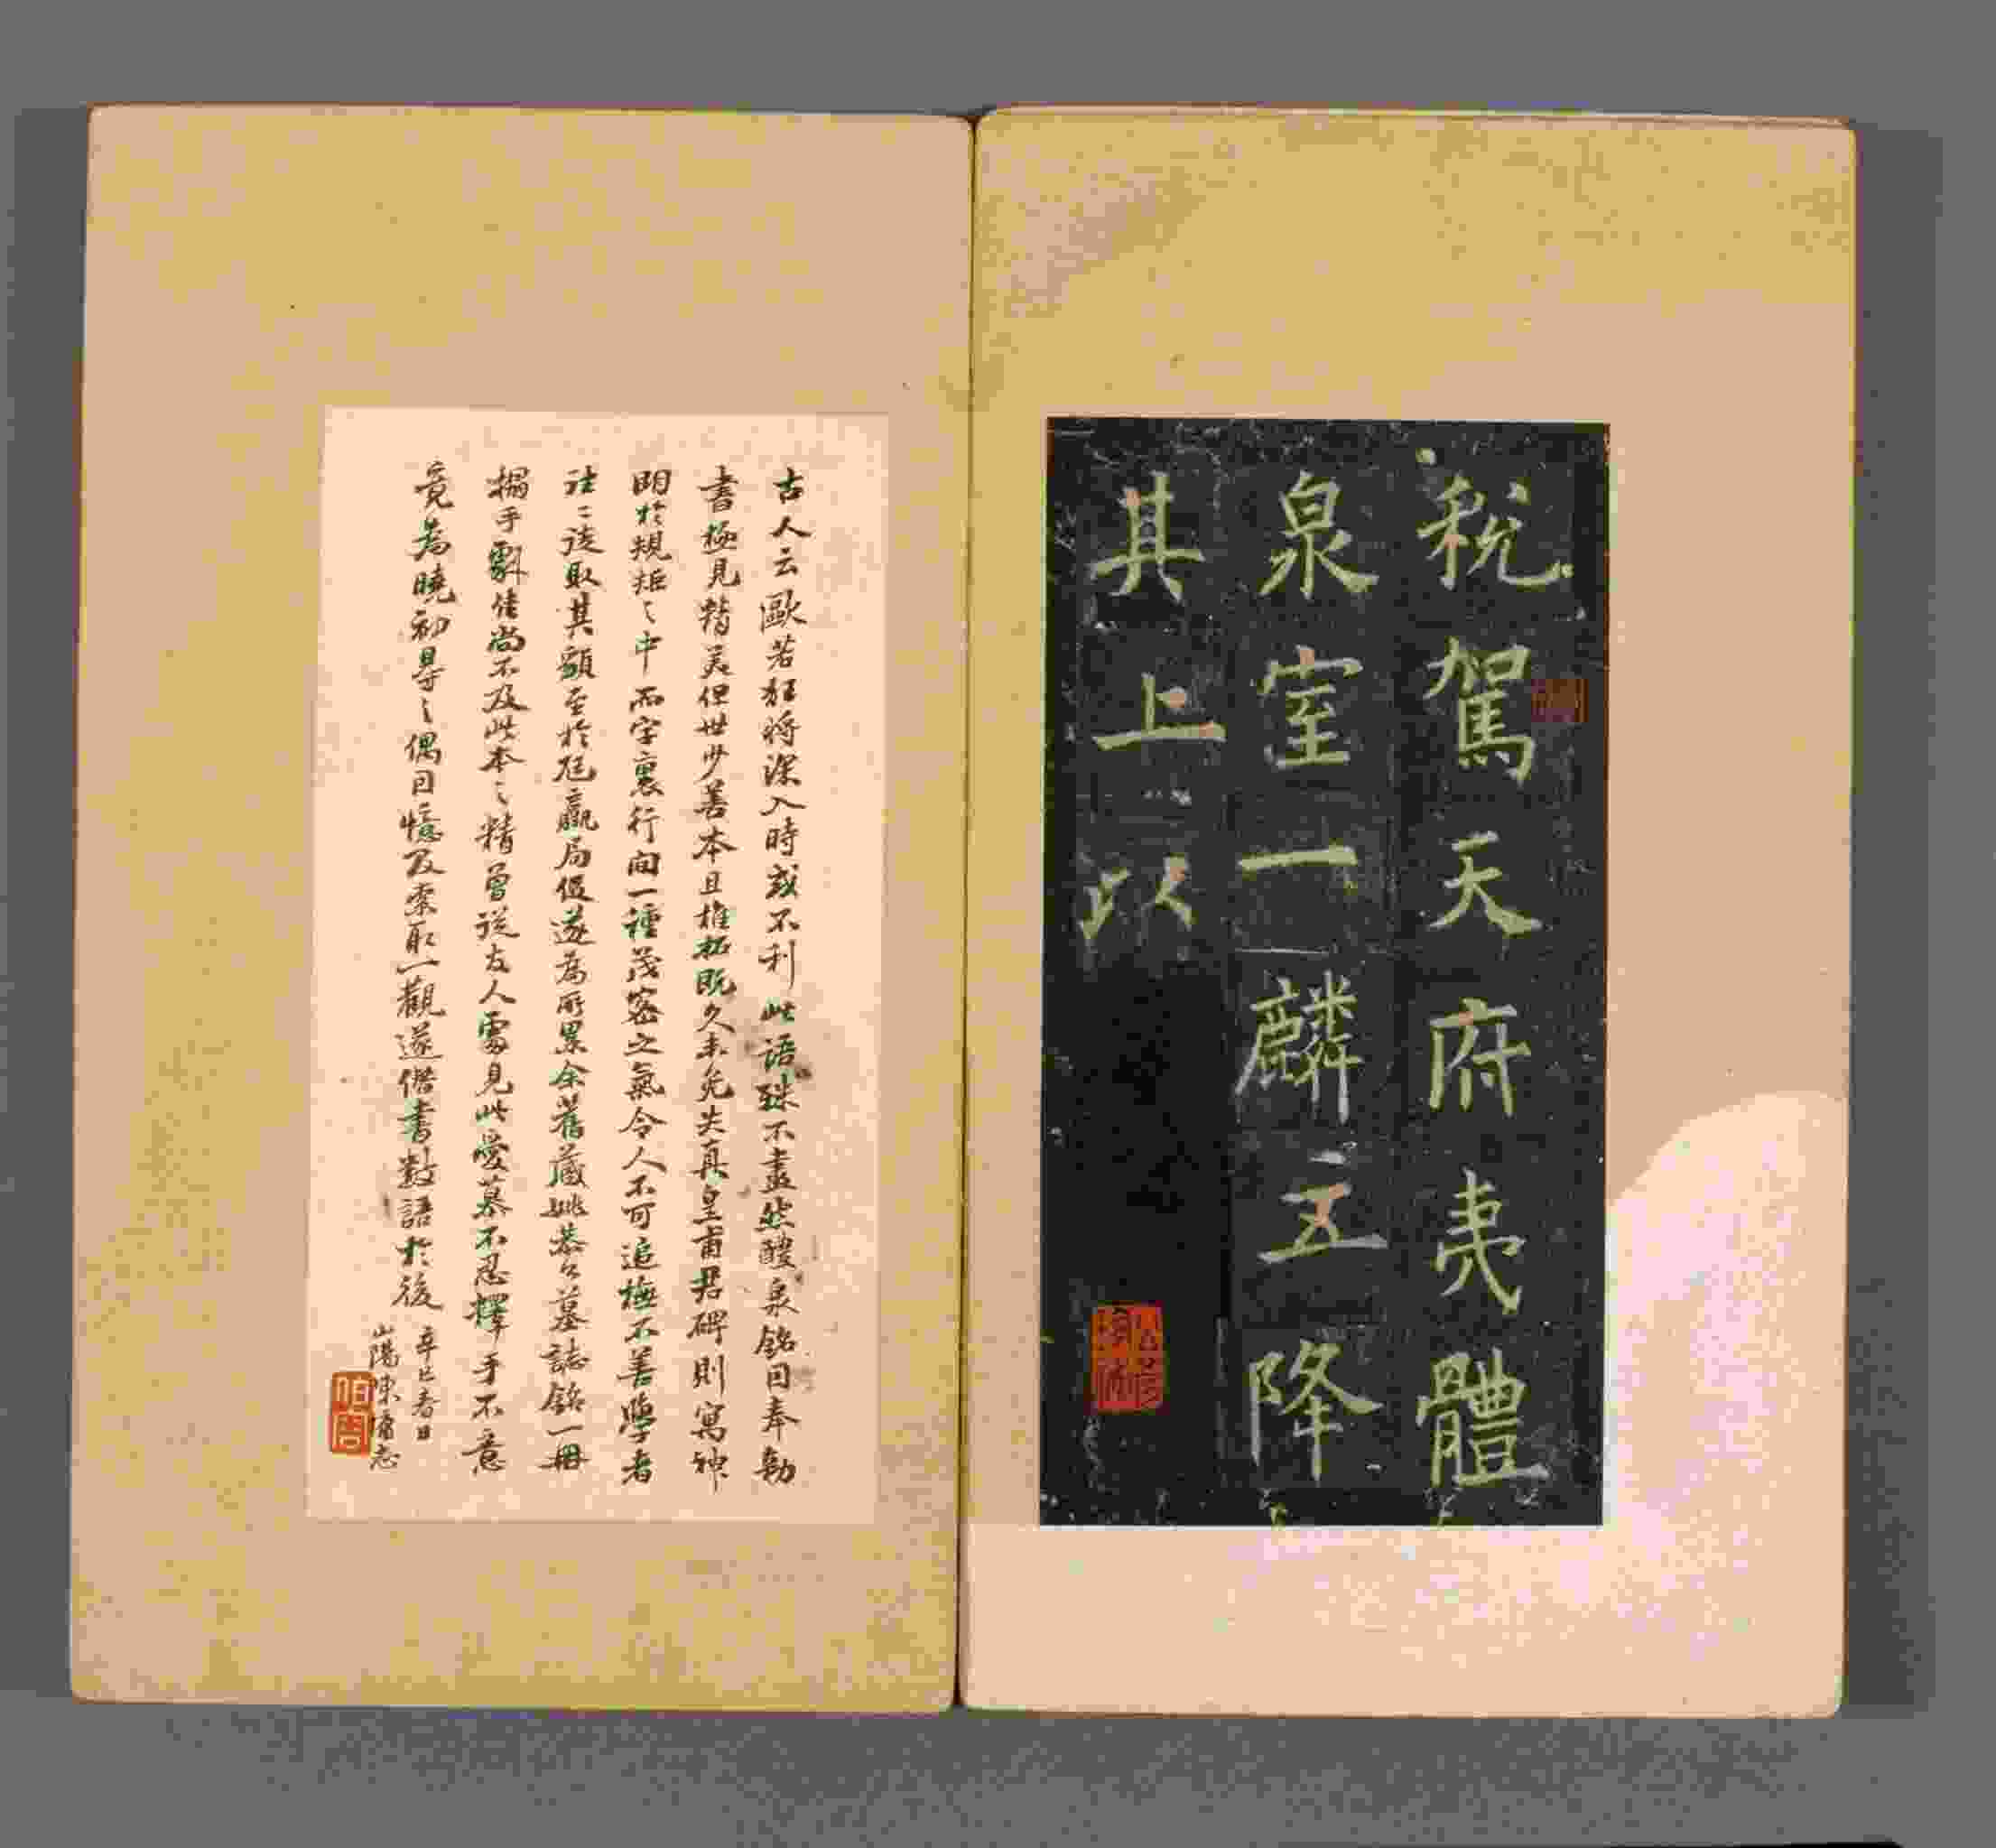 稅駕天府夷體
泉室一麟五降
其上以
古人云歐若狂將深入時或不利此語殊不盡然醴泉銘因奉勅
書極見精美但世少善本且椎拓既久未免失真皇甫君碑則寓神
明於規矩之中而字裏行間一種茂密之氣令人不可追撫不善學者
往往徒取其貌至於尫羸局促遂為所累余舊藏姚恭公墓誌銘一冊
搨手劇佳尚不及此本之精曾從友人處見此愛慕不忍釋手不意
竟為曉初易之偶因憶及索取一觀遂僭書數語於後
辛巳春日
山陽陳庸志
伯商